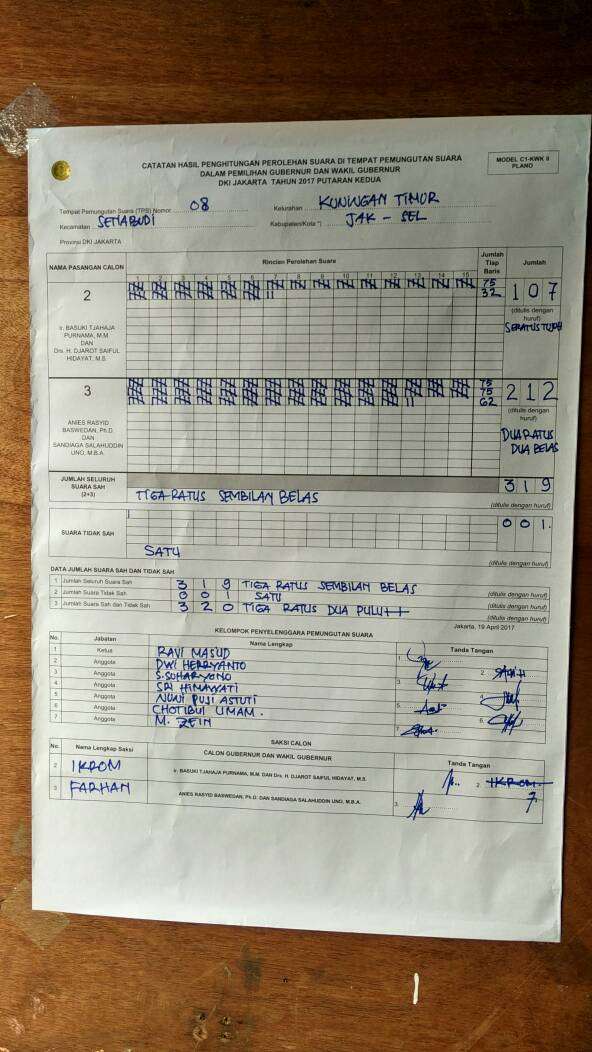 CATATAN HASIL PENGHITUNGAN PEROLEHAN SUARA DI TEMPAT PEMUNGUTAN SUARA
DALAM PEMILIHAN GUBERNUR DAN WAKIL GUBERNUR
DKI JAKARTA TAHUN 2017 PUTARAN KEDUA
MODEL C1-KWK 8
PLANO
Tempat Pemungutan Suara (TPS) Nomor 08 Kelurahan KUNINGAN TIMUR
Kecamatan SETIABUDI Kabupaten/Kota *) JAK - SEL
Provinsi DKI JAKARTA
NAMA PASANGAN CALON Rincian Perolehan Suara Jumlah Tiap Baris Jumlah
1 2 3 4 5 6 7 8 9 10 11 12 13 14 15
2
75
32
107
(ditulis dengan huruf)
Ir. BASUKI TJAHAJA
PURNAMA, M.M
DAN
Drs. H. DJAROT SAIFUL
HIDAYAT, M.S.
3
75
75
62
212
(ditulis dengan huruf)
DUA RATUS
DUA BELAS
ANIES RASYID
BASWEDAN, Ph.D.
DAN
SANDIAGA SALAHUDDIN
UNO, M.B.A.
JUMLAH SELURUH
SUARA SAH
(2+3)
319
TIGA RATUS SEMBILAN BELAS
(ditulis dengan huruf)
SUARA TIDAK SAH
001
SATU
(ditulis dengan huruf)
DATA JUMLAH SUARA SAH DAN TIDAK SAH
1 Jumlah Seluruh Suara Sah 319 TIGA RATUS SEMBILAN BELAS (ditulis dengan huruf)
2 Jumlah Suara Tidak Sah 001 SATU (ditulis dengan huruf)
3 Jumlah Suara Sah dan Tidak Sah 320 TIGA RATUS DUA PULUH (ditulis dengan huruf)
Jakarta, 19 April 2017
KELOMPOK PENYELENGGARA PEMUNGUTAN SUARA
No. Jabatan Nama Lengkap Tanda Tangan
1 Ketua RAVI MAS'UD 1.
2 Anggota DWI HERRYANTO 2.
3 Anggota S. SOHARYONO 3.
4 Anggota SRI HIMAWATI 4.
5 Anggota NUNI PUJI ASTUTI 5.
6 Anggota CHOTIBUL UMAM. 6.
7 Anggota M. ZEIN 7.
SAKSI CALON
No. Nama Lengkap Saksi CALON GUBERNUR DAN WAKIL GUBERNUR Tanda Tangan
2 IKROM Ir. BASUKI TJAHAJA PURNAMA, M.M DAN Drs. H. DJAROT SAIFUL HIDAYAT, M.S. 2. IKROM
3 FARHAN ANIES RASYID BASWEDAN, Ph.D. DAN SANDIAGA SALAHUDDIN UNO, M.B.A. 3.